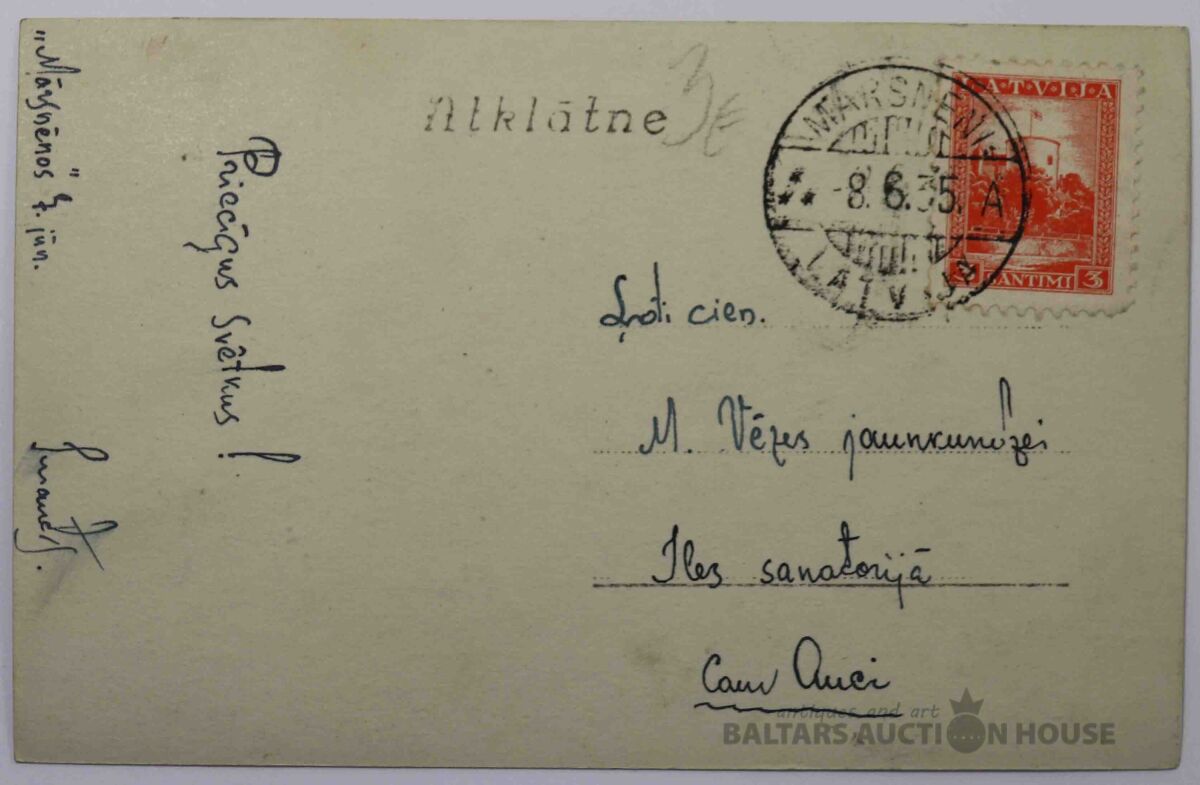 "Mārsnēnos" 7. jūn.
Priecīgus Svētkus!
Atklātne
3€
MARSNENI
-8. 6. 35. A
LATVIJA
LATVIJA
3 SANTIMI 3
Ļoti cien.
M. Vēzes jaunkundzei
Iles sanatorijā
Caur Auci
antiques and art
BALTARS AUCTION HOUSE